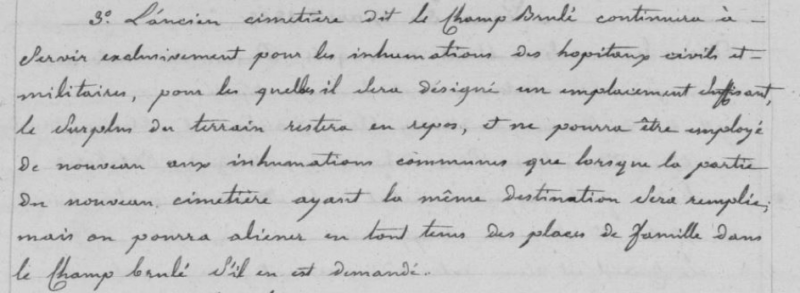 3º. L'ancien cimetière dit le Champ Brulé continuera à -
servir exclusivement pour les inhumations des hopitaux civils et -
militaires, pour les quelles il sera désigné un emplacement suffisant,
le surplus du terrain restera en repos, et ne pourra être employé
de nouveau aux inhumations communes que lorsque la partie
du nouveau cimetière ayant la même destination sera remplie;
mais on pourra aliener en tout tems des places de famille dans
le Champ brulé s'il en est demandé.